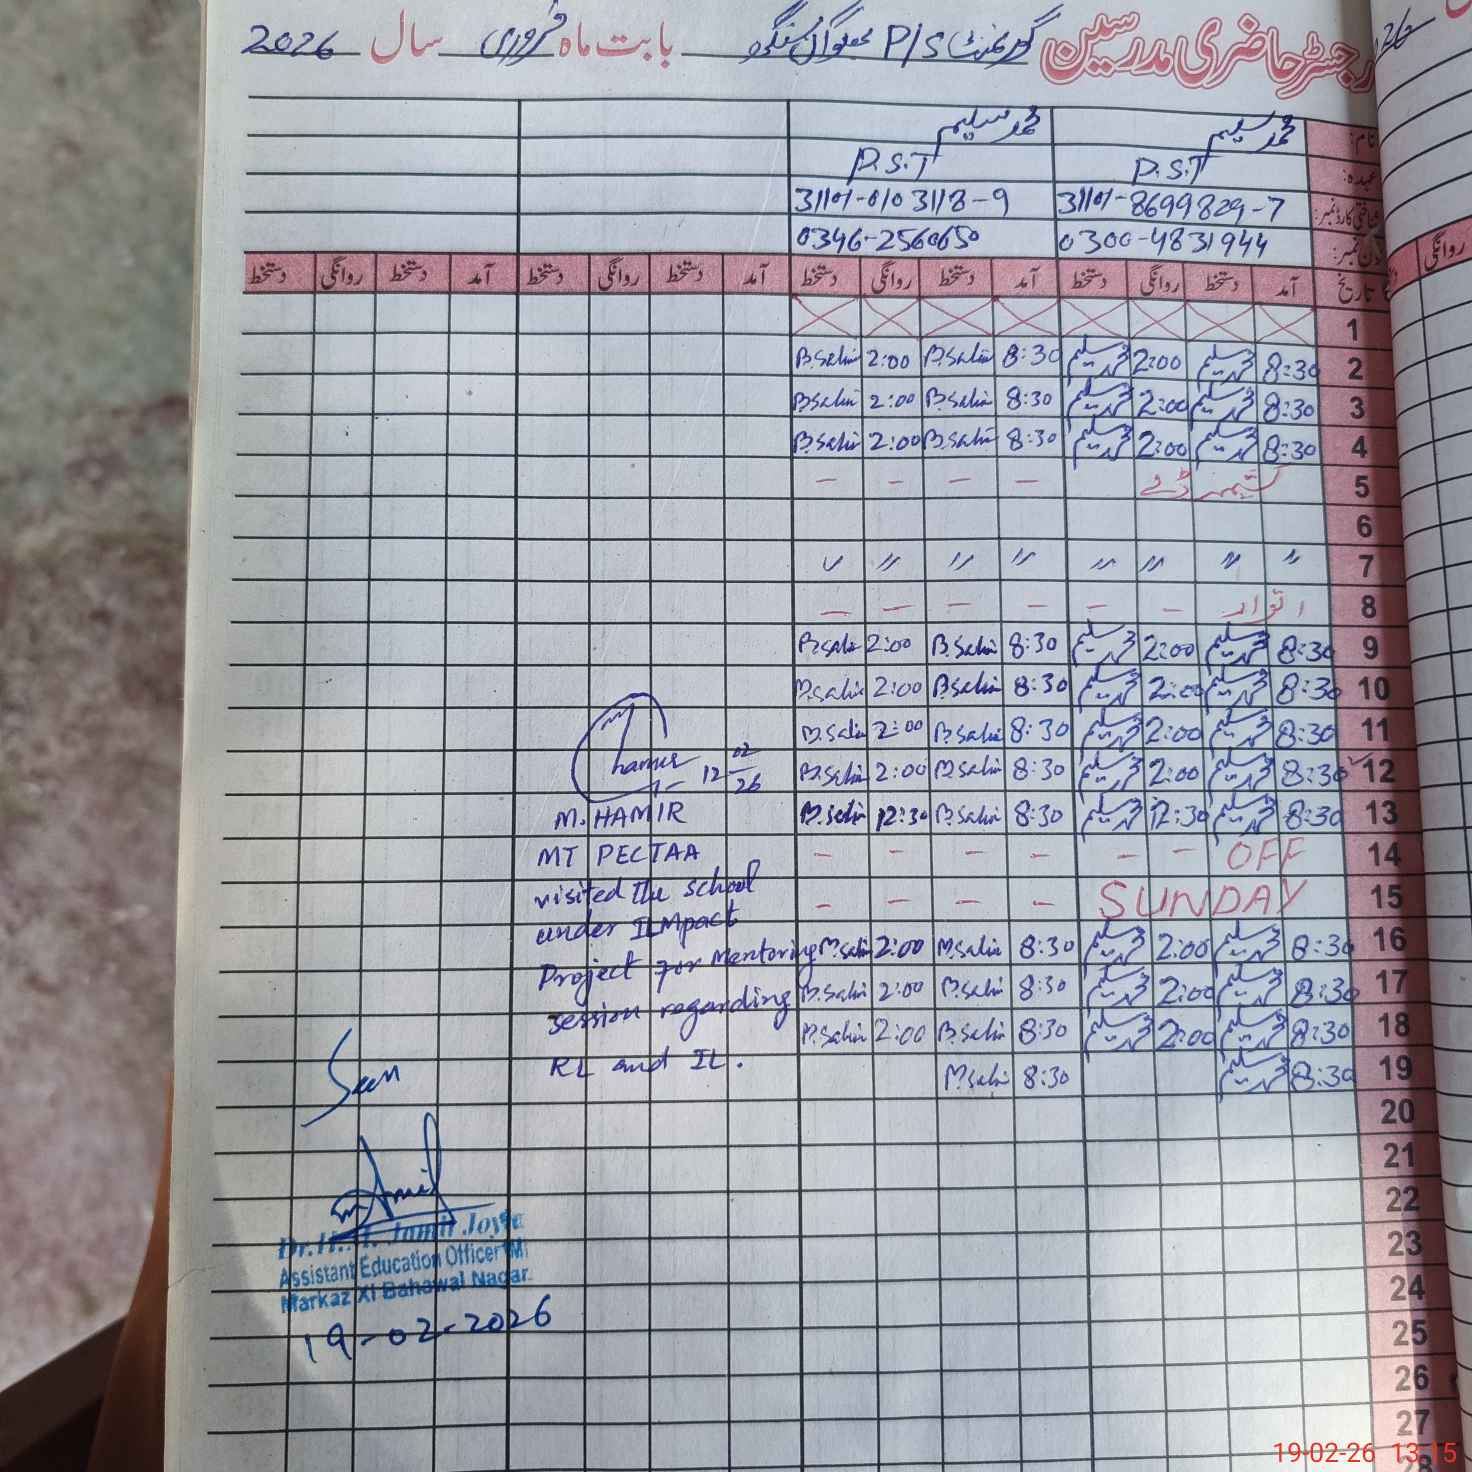 رجسٹر حاضری مدرسین گورنمنٹ P/S بابت ماہ فروری سال 2026
نام: محمد سلیم محمد سلیم
عہدہ: P.S.T P.S.T
شناختی کارڈ نمبر: 31101-8699829-7 31101-0103118-9
فون نمبر: 0300-4831944 0346-2560650
تاریخ آمد دستخط روانگی دستخط آمد دستخط روانگی دستخط آمد دستخط روانگی دستخط آمد دستخط روانگی دستخط
1
2 8:30 محمد سلیم 2:00 محمد سلیم 8:30 M.Salim 2:00 M.Salim
3 8:30 محمد سلیم 2:00 محمد سلیم 8:30 M.Salim 2:00 M.Salim
4 8:30 محمد سلیم 2:00 محمد سلیم 8:30 M.Salim 2:00 M.Salim
5 کشمیر ڈے - - - -
6
7 " " " " " " " "
8 اتوار - - - - - -
9 8:30 محمد سلیم 2:00 محمد سلیم 8:30 M.Salim 2:00 M.Salim
10 8:30 محمد سلیم 2:00 محمد سلیم 8:30 M.Salim 2:00 M.Salim
11 8:30 محمد سلیم 2:00 محمد سلیم 8:30 M.Salim 2:00 M.Salim
12 8:30 محمد سلیم 2:00 محمد سلیم 8:30 M.Salim 2:00 M.Salim
13 8:30 محمد سلیم 12:30 محمد سلیم 8:30 M.Salim 12:30 M.Salim
14 OFF - - - - - -
15 SUNDAY - - - -
16 8:30 محمد سلیم 2:00 محمد سلیم 8:30 M.Salim 2:00 M.Salim
17 8:30 محمد سلیم 2:00 محمد سلیم 8:30 M.Salim 2:00 M.Salim
18 8:30 محمد سلیم 2:00 محمد سلیم 8:30 M.Salim 2:00 M.Salim
19 8:30 محمد سلیم 8:30 M.Salim
20
21
22
23
24
25
26
27
28
12 02/26
M. HAMIR
MT PECTAA
visited the school
under ILMpact
Project for Mentoring
session regarding
RL and IL.
Seen
Jamil Joyia
Assistant Education Officer (M)
Markaz XI Bahawal Nagar
19-02-2026
روانگی
19-02-26 13:15